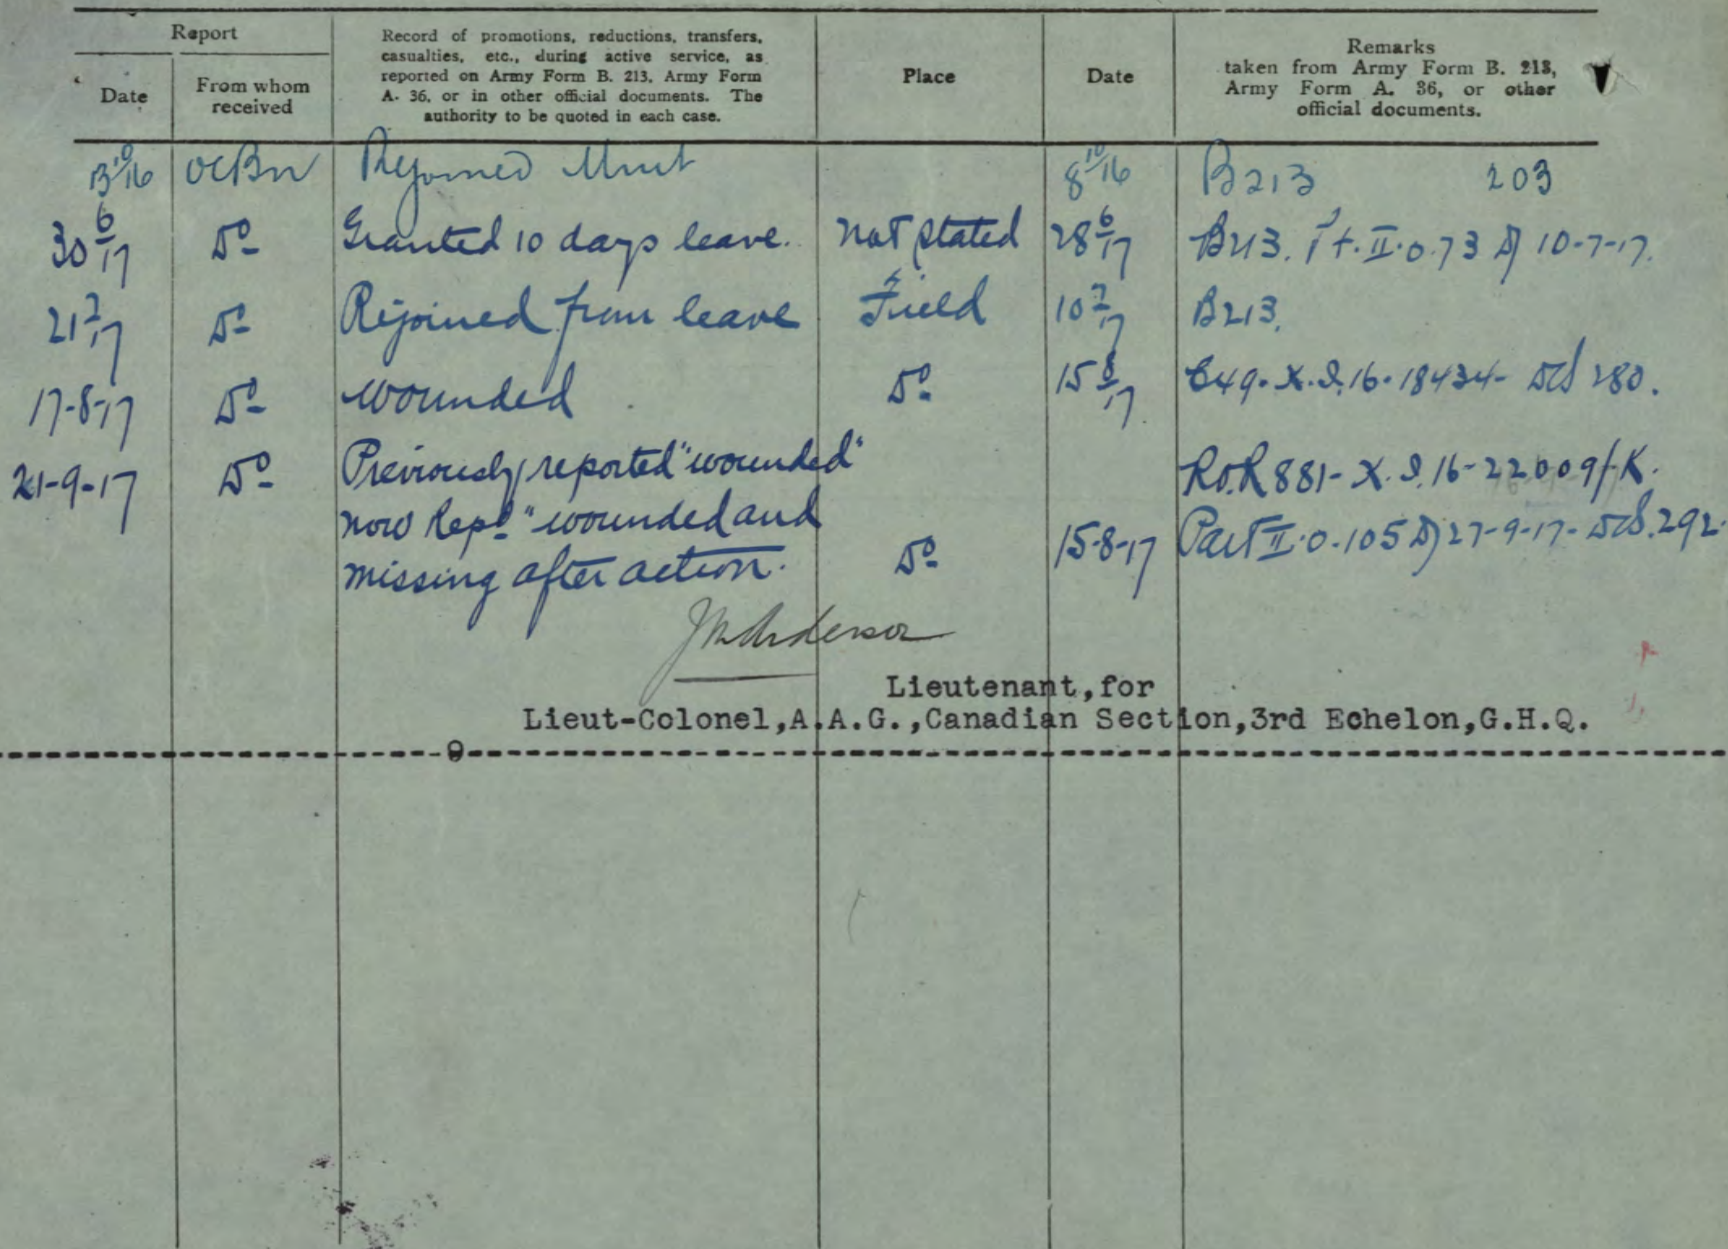 Report
Date
From whom received
Record of promotions, reductions, transfers, casualties, etc., during active service, as reported on Army Form B. 213, Army Form A. 36, or in other official documents. The authority to be quoted in each case.
Place
Date
Remarks
taken from Army Form B. 213, Army Form A. 36, or other official documents.
13 10/16 OCBn Rejoined Unit 8 10/16 B213 203
30 6/17 Do Granted 10 days leave. Not stated 28 6/17 B213. Pt. II.O.73 D/ 10-7-17.
21 7/17 Do Rejoined from leave Field 10 7/17 B213.
17-8-17 Do wounded Do 15 8/17 X.S.16-18434- 280.
21-9-17 Do Previously reported "wounded" R.O.R 881-X.S.16-22009/-K.
now Repd "wounded and
missing after action. Do 15-8-17 Part II.O.105 D/ 27-9-17- 292.
Anderson
Lieutenant,for
Lieut-Colonel,A.A.G.,Canadian Section,3rd Echelon,G.H.Q.